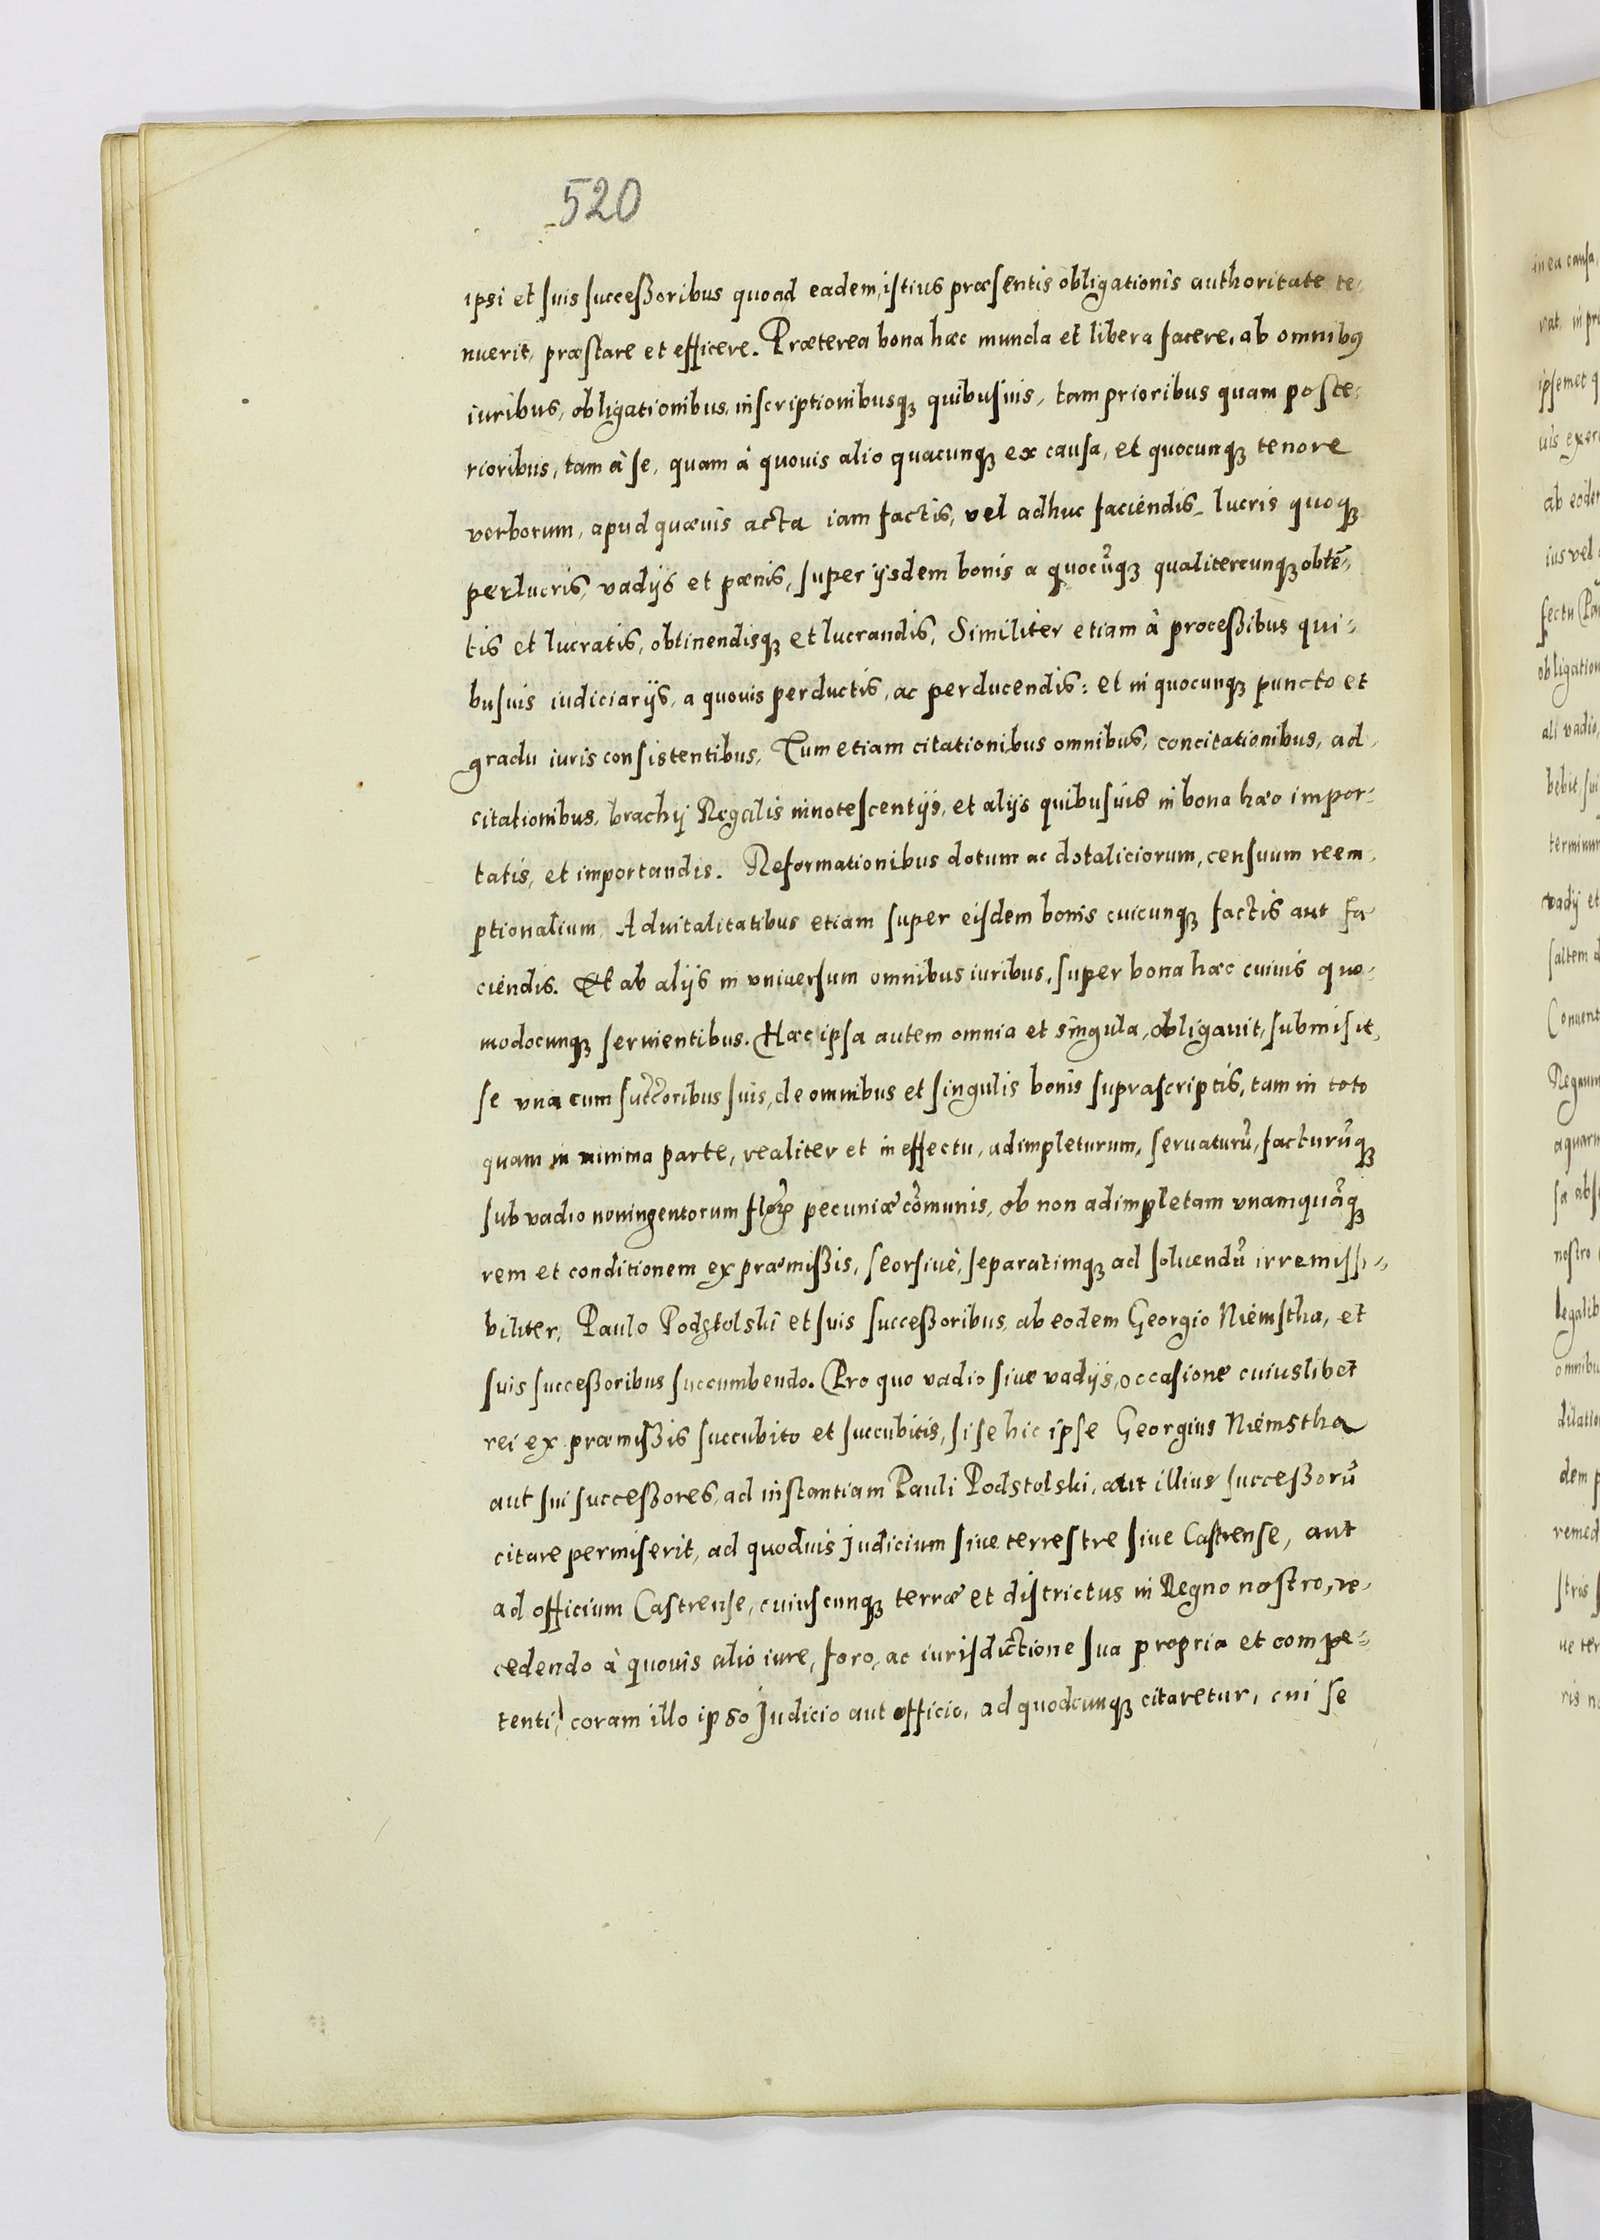 520
ipsi et suis succeßoribus quoad eadem, istius præsentis obligationis authoritate te-
nuerit, præstare et efficere. Præterea bona hæc munda et libera facere, ab omnibꝰ
iuribus, obligationibus, inscriptionibusqꝫ quibusuis, tam prioribus quam poste-
rioribus, tam à se, quam à quouis alio quacunqꝫ ex causa, et quocunqꝫ tenore
verborum, apud quæuis acta iam factis, vel adhuc faciendis, lucris quoqꝫ
perlucris, vadijs et pænis, super ijsdem bonis a quocūqꝫ qualitercunqꝫ obtē-
tis et lucratis, obtinendisqꝫ et lucrandis, Similiter etiam à proceßibus qui-
busuis iudiciarijs, a quouis perductis, ac perducendis: et in quocunqꝫ puncto et
gradu iuris consistentibus, Tum etiam citationibus omnibus, concitationibus, ad-
citationibus, brachij Regalis innotescentijs, et alijs quibusuis in bona hæc impor-
tatis, et importandis. Reformationibus dotum ac dotaliciorum, censuum reem-
ptionalium, Aduitalitatibus etiam super eisdem bonis cuicunqꝫ factis aut fa-
ciendis. Et ab alijs in vniuersum omnibus iuribus, super bona hæc cuiuis quo-
modocunqꝫ seruientibus. Hæc ipsa autem omnia et singula, obligauit, submisit,
se vna cum succ̃oribus suis, de omnibus et singulis bonis suprascriptis, tam in toto
quam in minima parte, realiter et in effectu, adimpleturum, seruaturū, facturūqꝫ
sub vadio noningentorum florꝝ pecuniæ cōmunis, ob non adimpletam vnamquāqꝫ
rem et conditionem ex præmißis, seorsiuè, separatimqꝫ ad soluendū irremissi-
biliter, Paulo Podstolski et suis succeßoribus, ab eodem Georgio Niemstha, et
suis succeßoribus succumbendo. Pro quo vadio siue vadijs, occasione cuiuslibet
rei ex præmißis succubito et succubitis, si se hic ipse Georgius Niemstha
aut sui succeßores, ad instantiam Pauli Podstolski, aut illius succeßorū
citare permiserit, ad quoduis Judicium siue terrestre siue Castrense, aut
ad officium Castrense, cuiuscunqꝫ terræ et districtus in Regno nostro, re-
cedendo à quouis alio iure, foro, ac iurisdictione sua propria et compe-
tenti, coram illo ipso Judicio aut officio, ad quodcunqꝫ citaretur, cui se